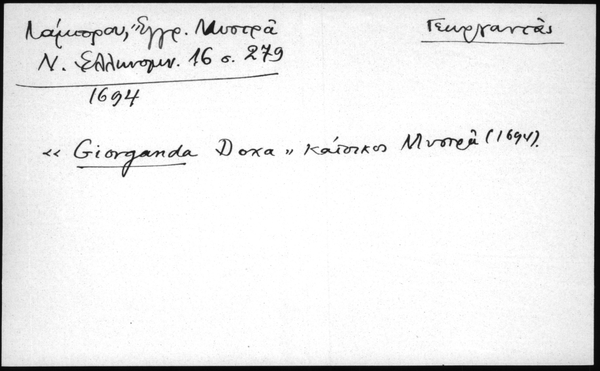 Λάμπρου, "Έγγρ. Μυστρᾶ
Γεωργαντᾶς
Ν. Ἑλληνομν. 16 σ. 279
1694
«Giorganda Doxa» κάτοικος Μυστρᾶ (1694).